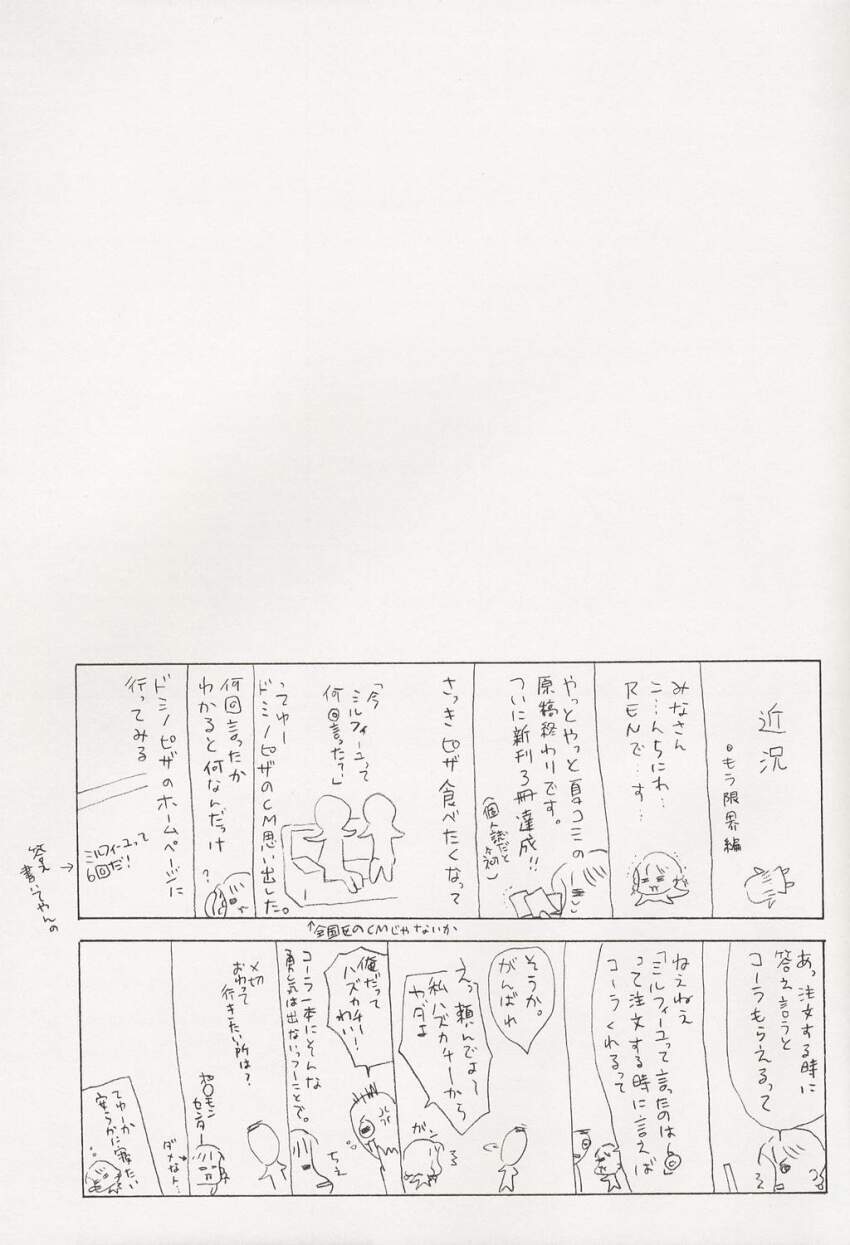 近況
•もう限界編
みなさん
こ…んちにわ…
RENで…す…
やっとやっと夏コミの
原稿終わりです。
ついに新刊3冊達成!!
さっきピザ食べたくなって
「今
ミルフィーユって
何回言った?」
ってゆー
ドミノピザのCM思い出した。
↑全国区のCMじゃないか
何回言ったか
わかると何なんだっけ
?
ドミノピザのホームページに
行ってみる
ミルフィーユって
6回だ!
答え
書いてやんの
あっ注文する時に
答え言うと
コーラもらえるって
ねぇねぇ
「ミルフィーユって言ったのは6回」
って注文する時に言えば
コーラくれるって
そうか。
がんばれ
えっ頼んでよ〜
私ハズカチーから
ヤダよ
ガーン
俺だって
ハズカチー!
わい!
コーラ一本にそんな
勇気は出ないっつーことで。
ちぇ
〆切
おわって
行きたい所は?
ポ○モン
センター
ダメなト…
てゆーか
安らかに寝たい